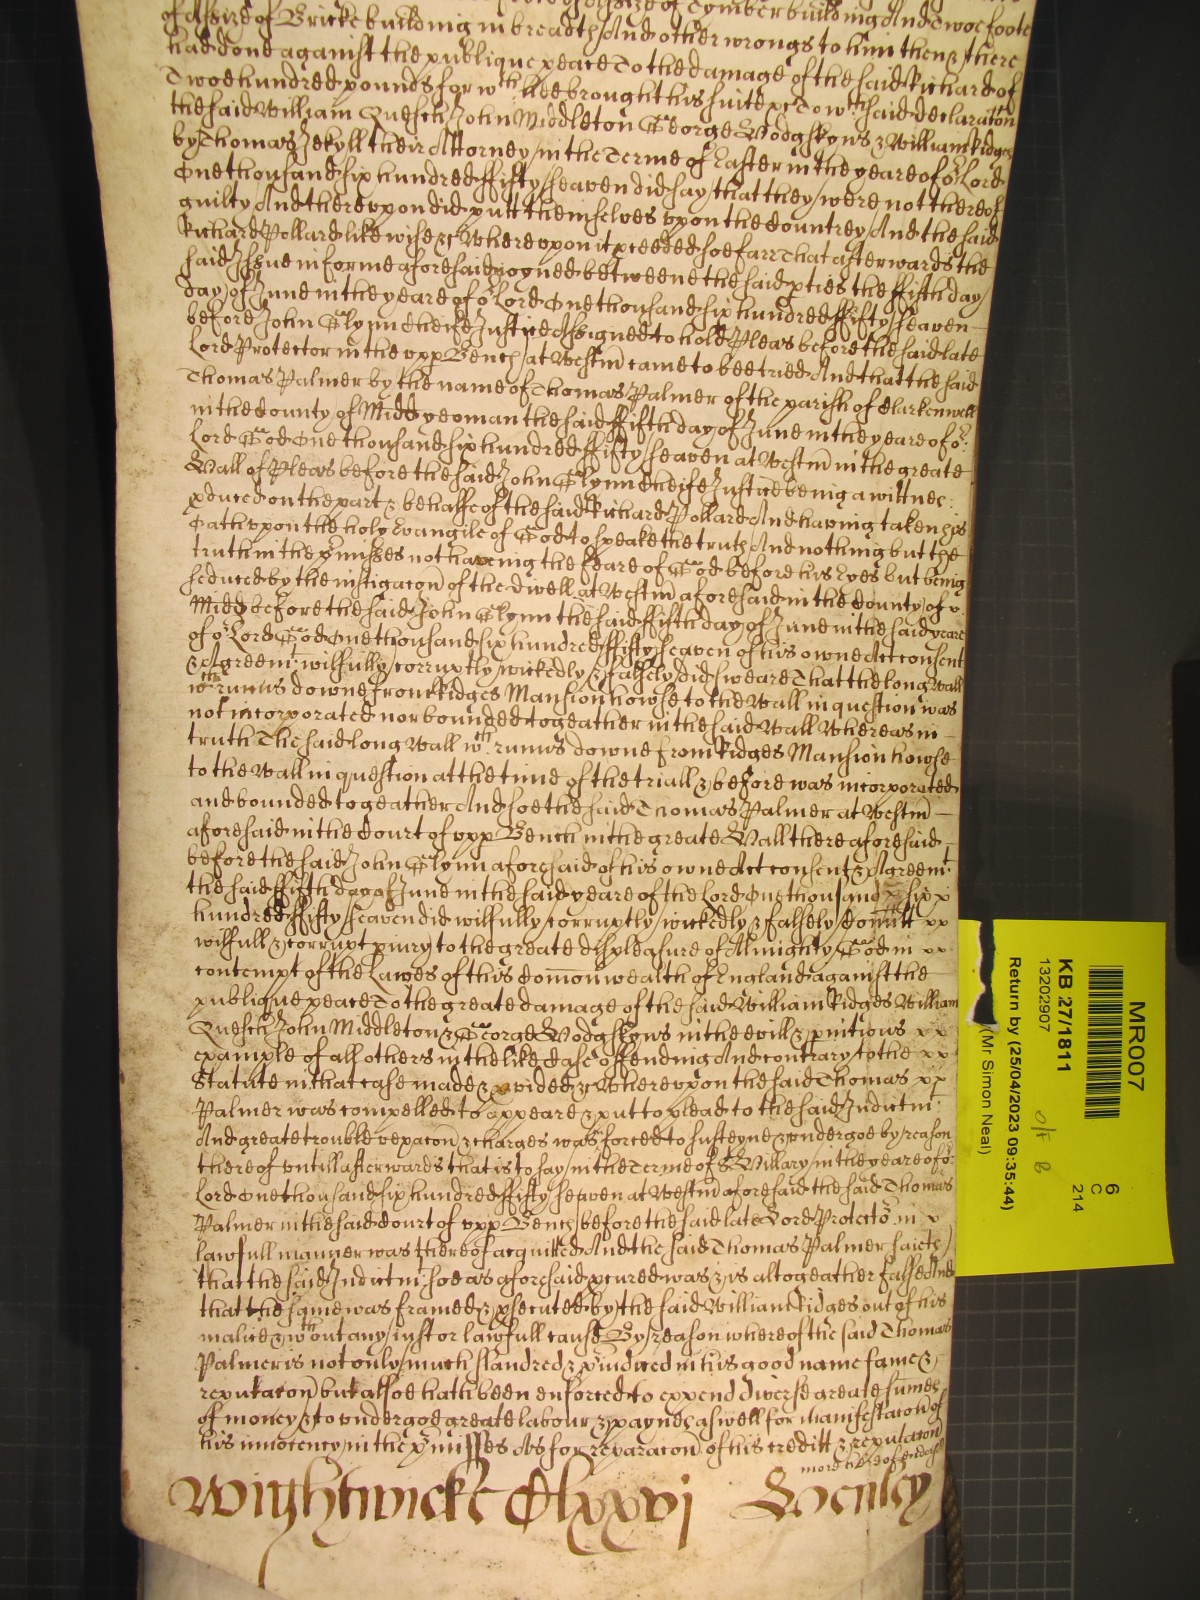 of Assize of Bricke building in breadth And other wrongs to him then & there
had done against the publique peace To the damage of the said Richard of
Twoe hundred pounds for wth. hee brought his suite &c To wch said declaraton
the said William Quelch John Middleton George Hodgskyns & William Ridges
by Thomas Jekyll their Attorney in the Terme of Easter in the yeare of or Lord
One thousand six hundred ffifty seaven did say that they were not thereof
guilty And thereupon did putt themselves upon the Countrey And the said
Richard Pollard likewise &c Whereupon it pceeded soe farr That afterwards the
said Issue in forme aforesaid ioyned betweene the said pties the ffifth day
day of June in the yeare of or Lord One thousand six hundred ffifty seaven
before John Glynn Cheife Justice Assigned to hold Pleas before the said late
Lord Protector in the upp Bench at Westm came to bee tried And that the said
Thomas Palmer by the name of Thomas Palmer of the parish of Clarkenwell
in the County of Midd yeoman the said ffifth day of June in the yeare of or.
Lord God One thousand six hundred ffifty seaven at Westm in the greate
Hall of Pleas before the said John Glynn Cheife Justice being a wittnes
pduced on the part & behalfe of the said Richard Pollard And having taken his
Oath upon the holy Evangile of God to speake the truth And nothing but the
truth in the pmisses not haveing the feare of God before his Eyes but being
seduced by the instigacon of the divell at Westm aforesaid in the County of
Midd before the said John Glynn the said ffifth day of June in the said yeare
of or Lord God One thousand six hundred ffifty seaven of his owne Act consent
& Agreemt. wilfully corruptly wickedly & falsely did sweare That the long Wall
wth runns downe from Ridges Mansion howse to the Wall in question was
not incorporated nor bounded togeather in the said Wall Whereas in
truth The said long Wall wch. runns downe from Ridges Mansion howse
to the Wall in question at the time of the triall & before was incorporated
and bounded togeather And soe the said Thomas Palmer at Westm
aforesaid in the Court of upp Bench in the greate Hall there aforesaid
before the said John Glynn aforesaid of his owne Act consent & Agreemt.
the said ffifth day of June in the said yeare of the Lord One thousand six x
hundred ffifty seaven did wilfully corruptly wickedly & falsely comitt xx
wilfull & corrupt piury to the greate displeasure of Almighty God in xx
contempt of the Lawes of this Comonwealth of England against the
publique peace To the greate damage of the said William Ridges William
Quelch John Middleton & George Hodgskyns in the evill & pnitious xx
example of all others in the like Case offending And contrary to the xx
Statute in that case made & pvided &c Whereupon the said Thomas xx
Palmer was compelled to appeare & put to plead to the said Indictmt.
And greate trouble vexacon & charges was forced to susteyne & undergoe by reason
thereof untill afterwards that is to say in the Terme of St Hillary in the yeare of or.
Lord One thousand six hundred ffifty seaven at Westm aforesaid the said Thomas
Palmer in the said Court of upp Bench before the said late Lord Protector in
lawfull manner was thereof acquitted And the said Thomas Palmer saieth
that the said Indictmt. soe as aforesaid pcured was & is altogeather false And
that the same was framed & psecuted by the said William Ridges out of his
malice & wthout any iust or lawfull cause By reason whereof the said Thomas
Palmer is not only much slandred & piudiced in his good name fame &
reputacon but alsoe hath been enforced to expend diverse greate sumes
of money & to undergoe greate labour & paynes aswell for manifestacon of
his innocency in the pmisses As for reparacon of his creditt & reputacon
more
Wightwicke Clxxvj Henley
MR007
KB 27/1811
13202907
Return by (25/04/2023 09:35:44)
(Mr Simon Neal)
6
C
214